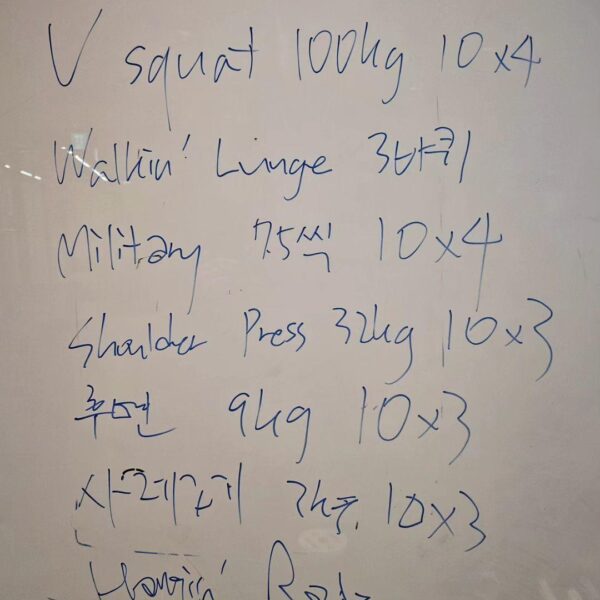 V squat 100kg 10x4
Walkin' Lunge 3바퀴
Military 7.5씩 10x4
Shoulder Press 32kg 10x3
후면 9kg 10x3
사레레 10x3
Hangin'